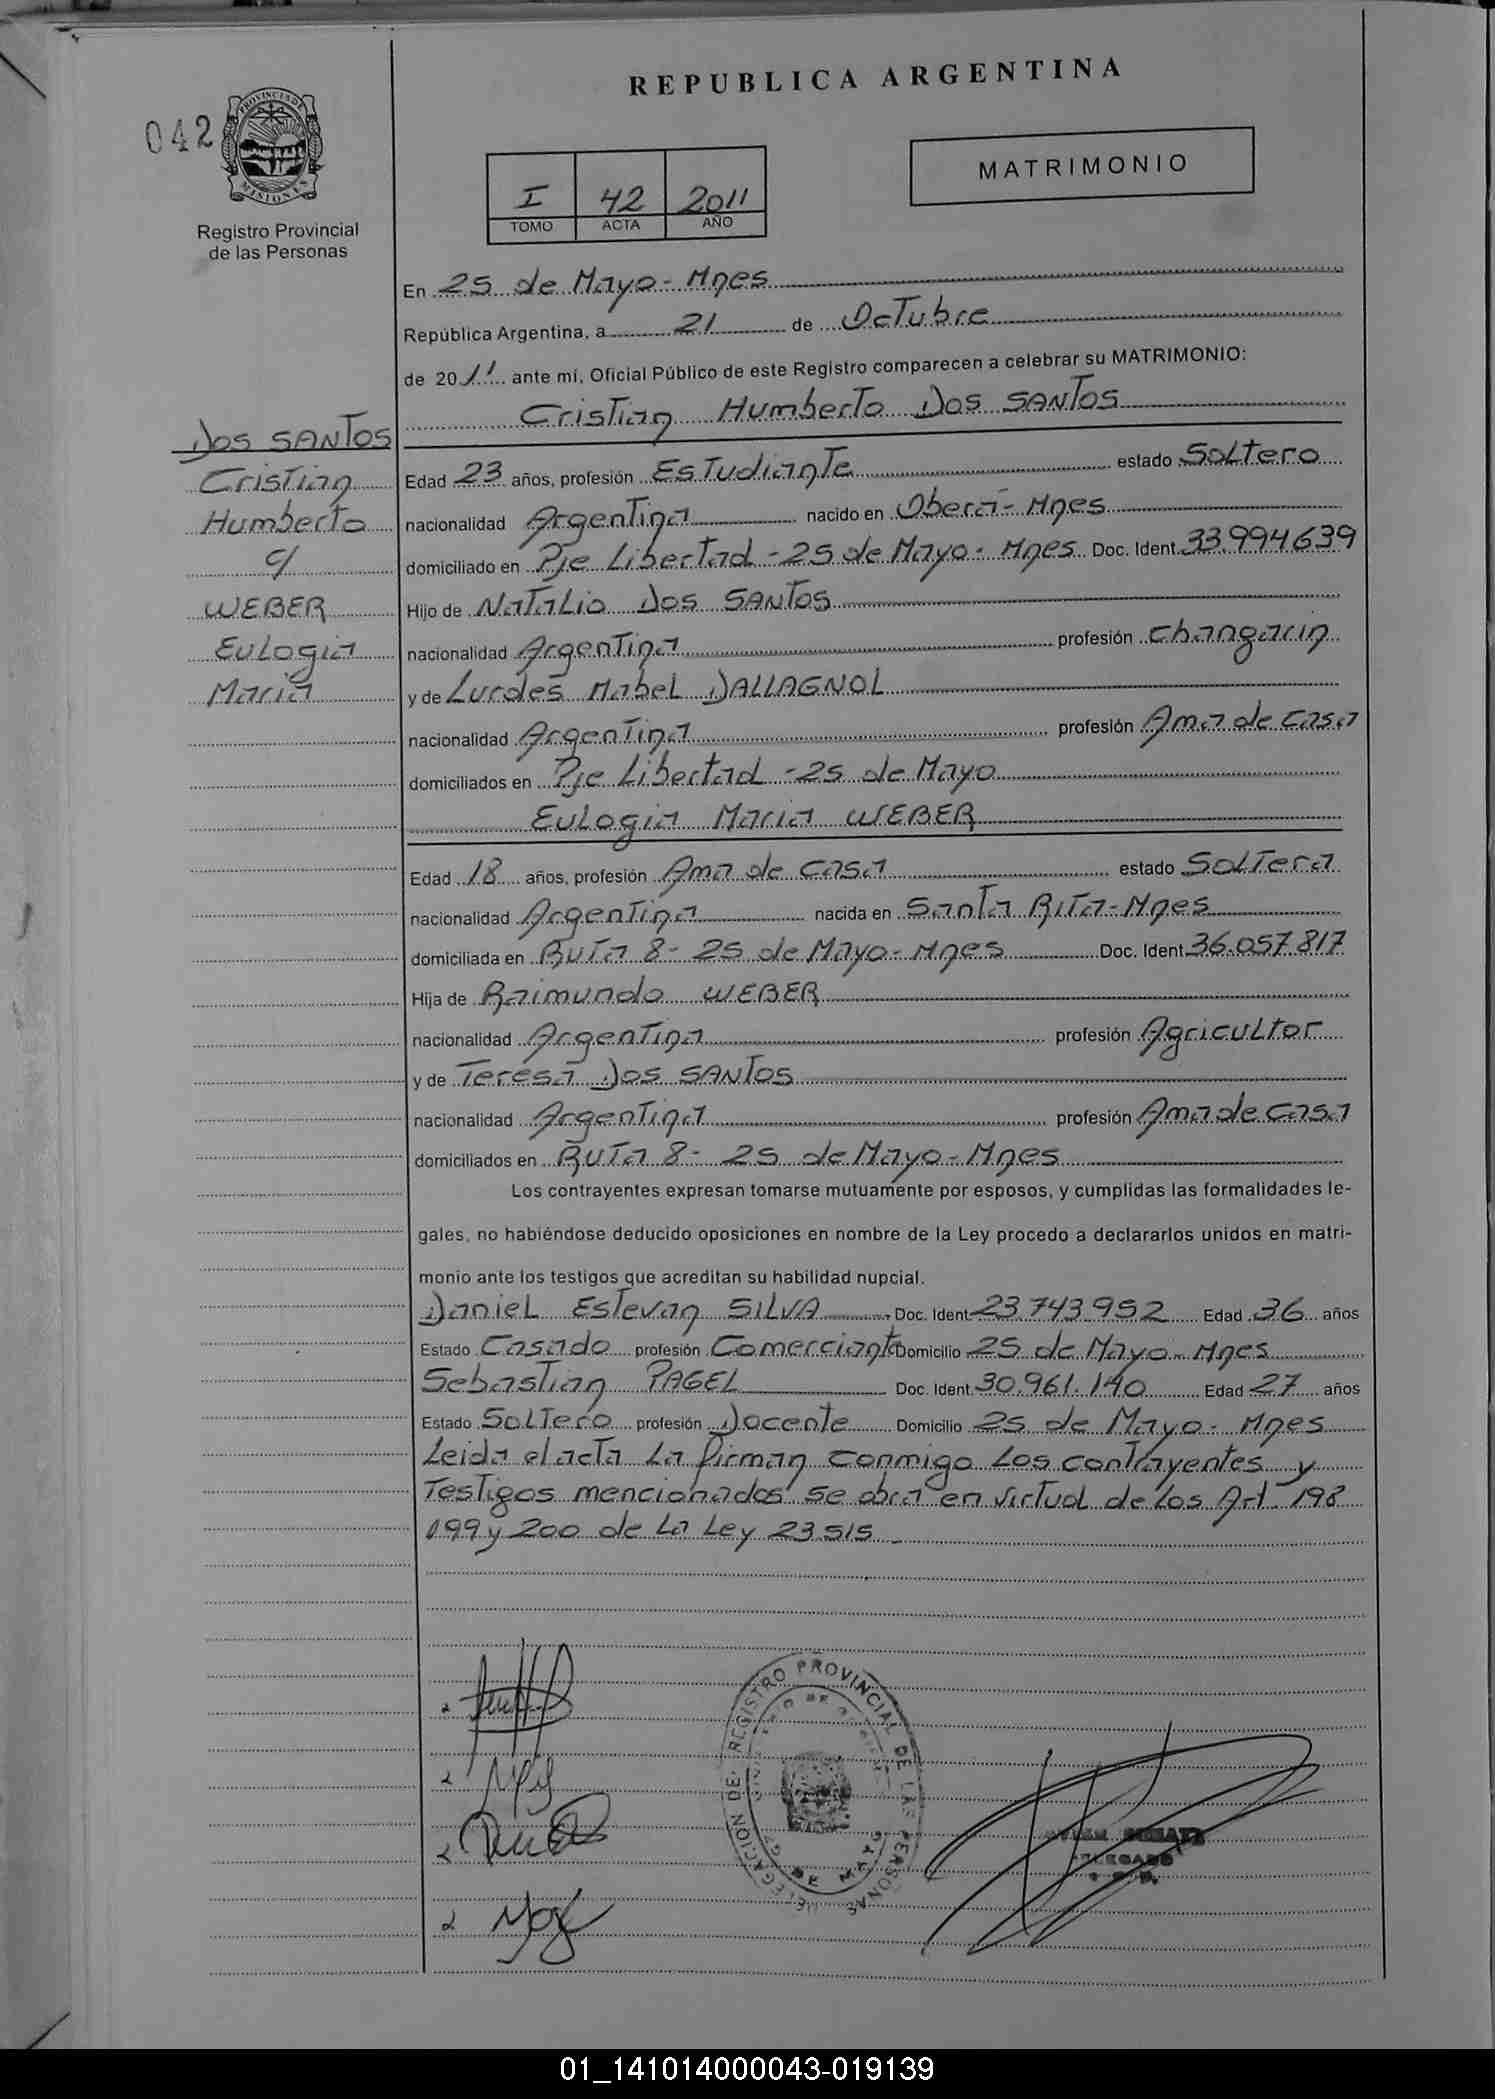 REPUBLICA ARGENTINA
042
PROVINCIA DE MISIONES
Registro Provincial
de las Personas
I 42 2011
TOMO ACTA AÑO
MATRIMONIO
En 25 de Mayo - Mnes
República Argentina, a 21 de Octubre
de 2011 ante mí, Oficial Público de este Registro comparecen a celebrar su MATRIMONIO:
Cristian Humberto Dos SANTOS
Dos SANTOS
Cristian
Humberto
c/
WEBER
Eulogia
Maria
Edad 23 años, profesión Estudiante estado Soltero
nacionalidad Argentina nacido en Oberá - Mnes
domiciliado en Pje Libertad - 25 de Mayo - Mnes Doc. Ident. 33.994639
Hijo de Natalio Dos SANTOS
nacionalidad Argentina profesión changarin
y de Lurdes Mabel DALLAGNOL
nacionalidad Argentina profesión Ama de casa
domiciliados en Pje Libertad - 25 de Mayo
Eulogia Maria WEBER
Edad 18 años, profesión Ama de casa estado Soltera
nacionalidad Argentina nacida en Santa Rita - Mnes
domiciliada en Ruta 8 - 25 de Mayo - Mnes Doc. Ident. 36.057.817
Hija de Raimundo WEBER
nacionalidad Argentina profesión Agricultor
y de Teresa Dos SANTOS
nacionalidad Argentina profesión Ama de casa
domiciliados en Ruta 8 - 25 de Mayo - Mnes
Los contrayentes expresan tomarse mutuamente por esposos, y cumplidas las formalidades le-
gales, no habiéndose deducido oposiciones en nombre de la Ley procedo a declararlos unidos en matri-
monio ante los testigos que acreditan su habilidad nupcial.
Daniel Estevan SILVA Doc. Ident. 23.743.952 Edad 36 años
Estado Casado profesión Comerciante Domicilio 25 de Mayo - Mnes
Sebastian PAGEL Doc. Ident. 30.961.140 Edad 27 años
Estado Soltero profesión Docente Domicilio 25 de Mayo - Mnes
Leida el acta la firman conmigo los contrayentes y
Testigos mencionados se obra en virtual de los Art. 198
199 y 200 de la Ley 23.515
DELEGACION DEL REGISTRO PROVINCIAL DE LAS PERSONAS
25 DE MAYO
DELEGADO
01_141014000043-019139